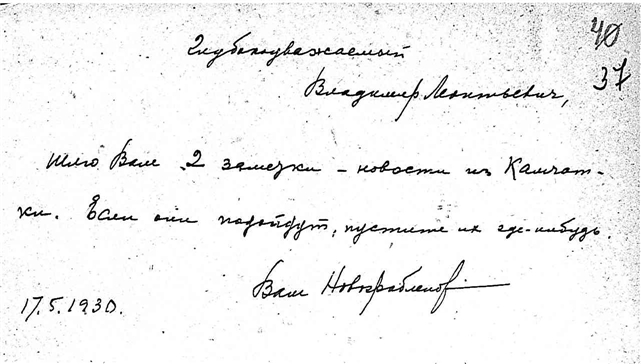 40
37
Глубокоуважаемый
Владимир Леонтьевич,
шлю Вам 2 заметки – новости из Камчат-
ки. Если они подойдут, пустите их где-нибудь.
Ваш Новограбленов
17.5.1930.